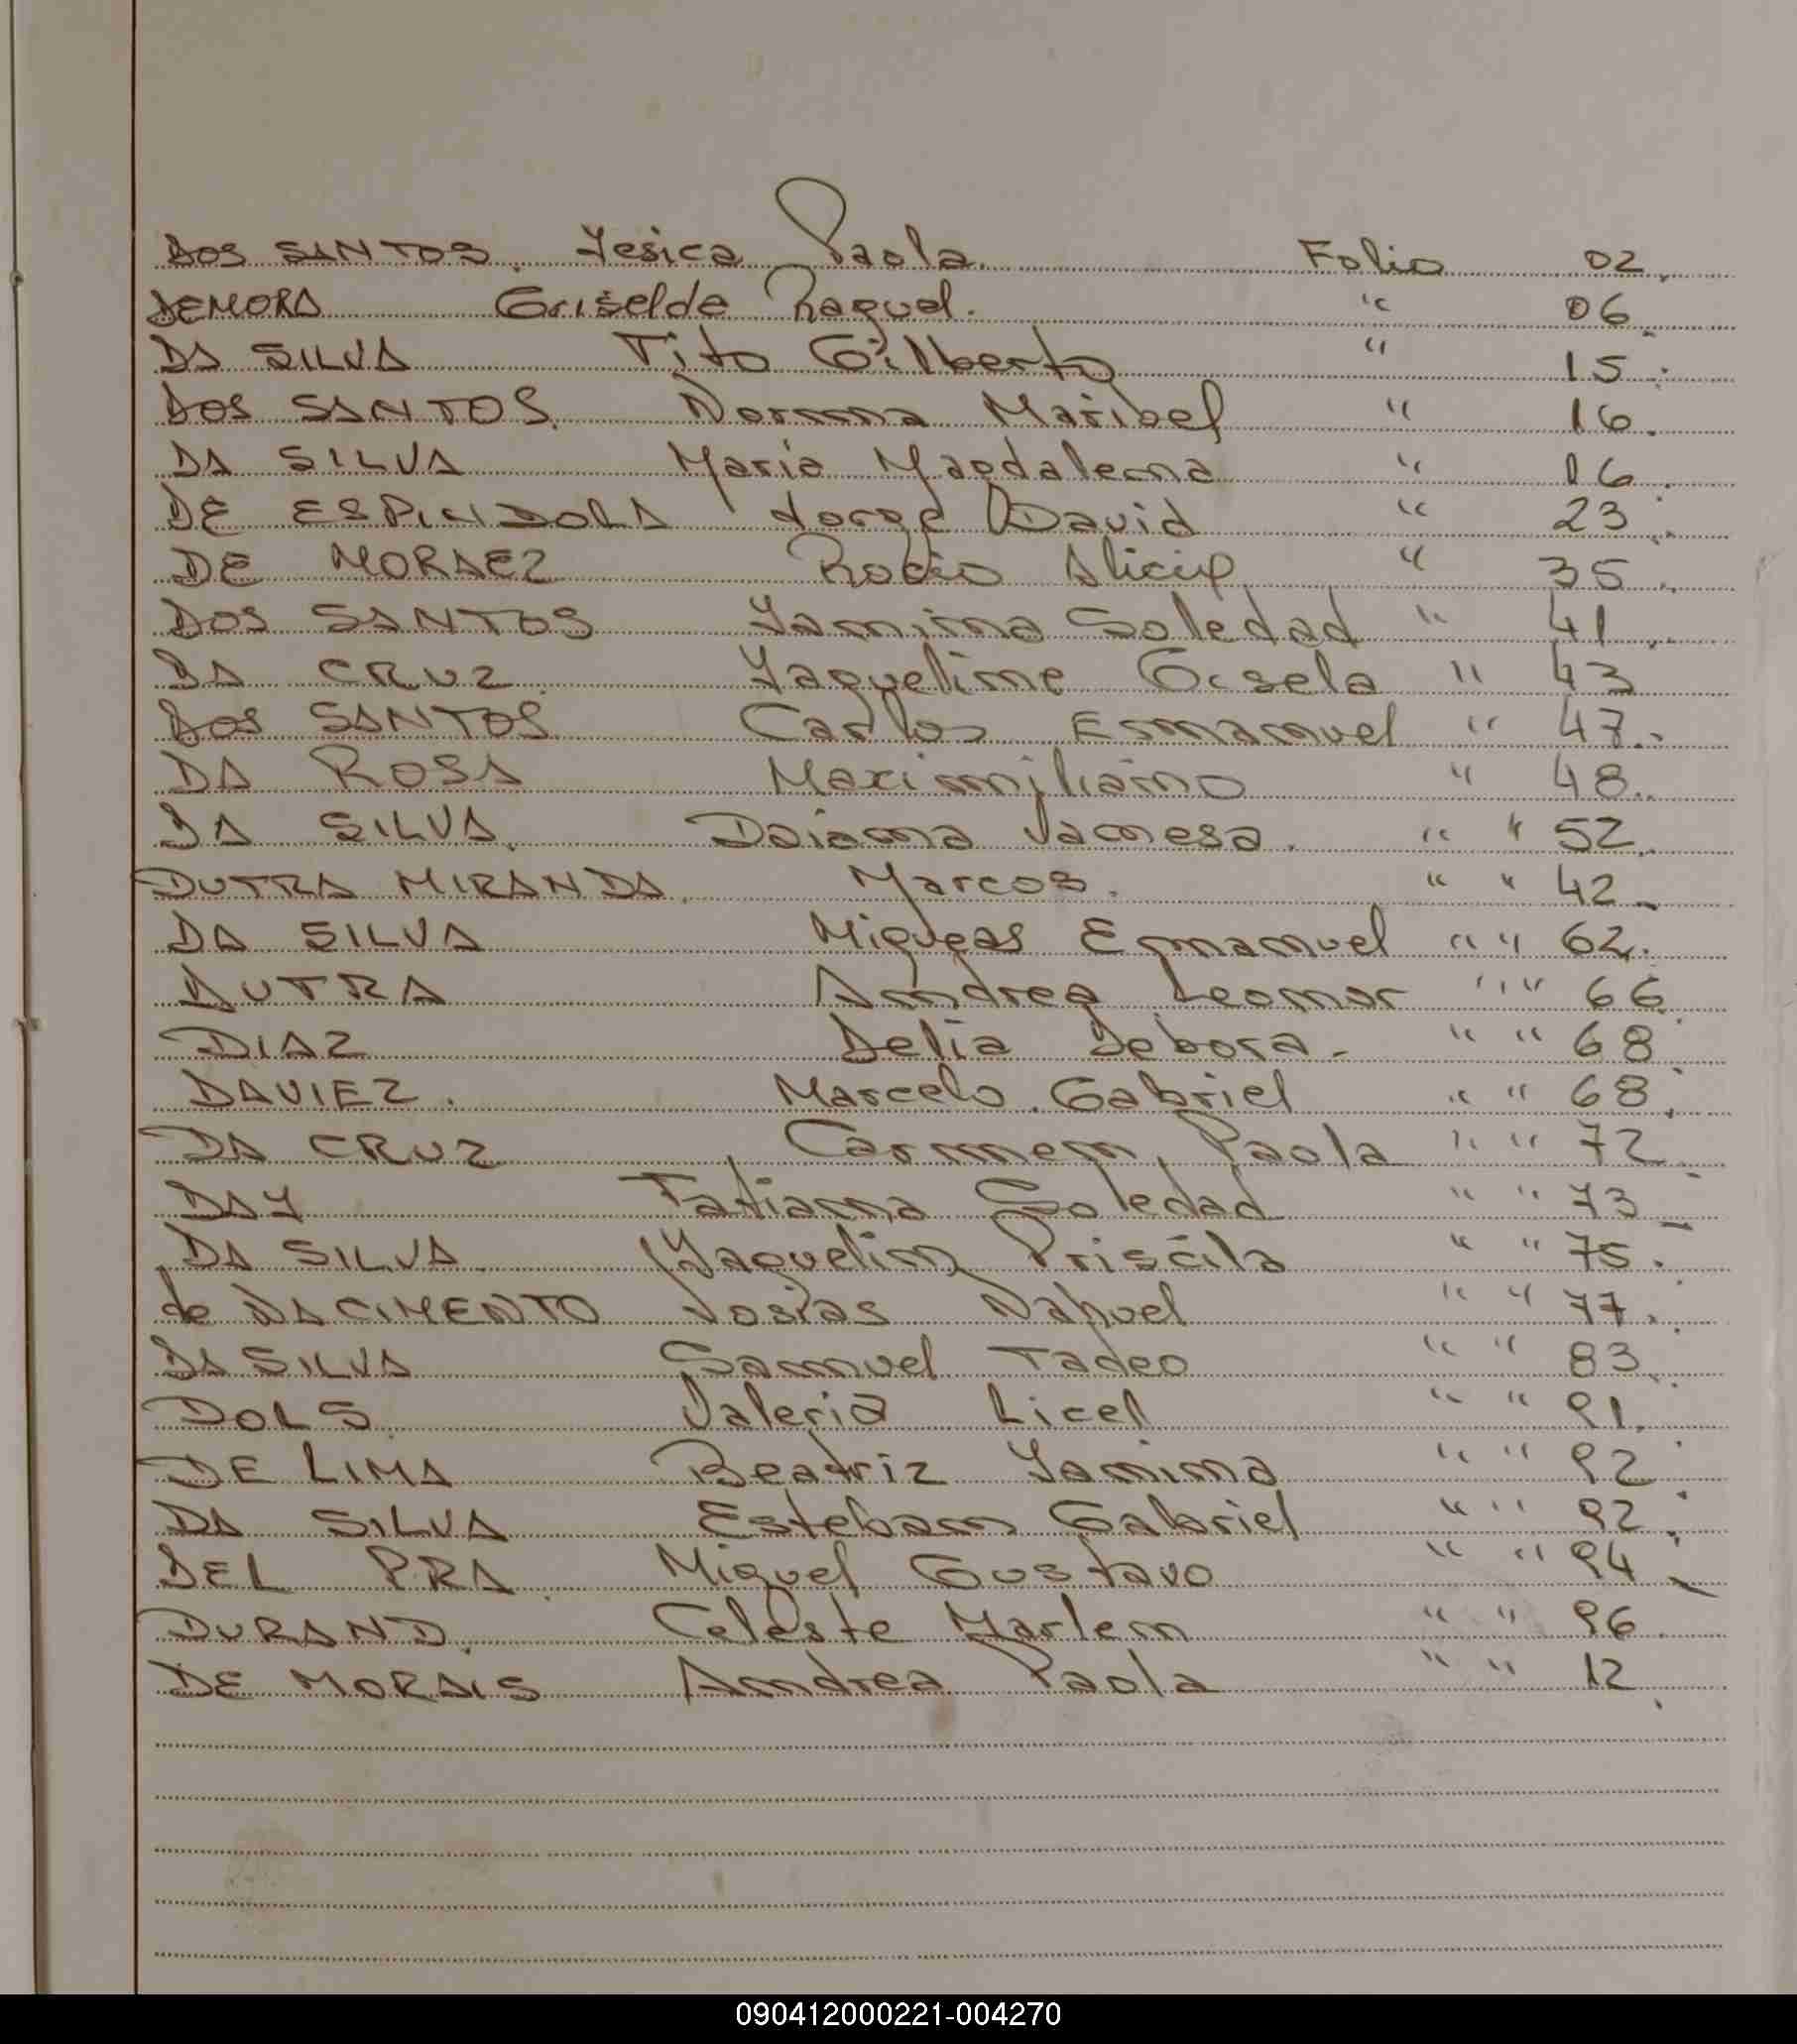 DOS SANTOS. Yesica Paola. Folio 02.
DEMORA Griselda Raquel. " 06.
DA SILVA Tito Gilberto " 15.
DOS SANTOS. Norma Maribel " 16.
DA SILVA Maria Magdalena " 16.
DE ESPINDOLA Jorge David " 23.
DE MORAEZ Rocio Alicia " 35.
DOS SANTOS Yamina Soledad " 41.
DA CRUZ. Yaqueline Gisela " 43
DOS SANTOS Carlos Emmanuel " 47.
DA ROSA Maximiliano " 48.
DA SILVA. Daiana Vanesa. " " 52.
DUTRA MIRANDA. Marcos. " " 42.
DA SILVA Miqueas Emanuel " " 62.
DUTRA Andrea Leonor " " 66.
DIAZ Delia Debora. " " 68
DAVIEZ. Marcelo Gabriel " " 68.
DA CRUZ Carmen Paola " " 72.
DAY Tatiana Soledad " " 73
DA SILVA. Yaquelin Priscila " " 75.
de NACIMENTO Josias Nahuel " " 77.
DA SILVA Samuel Tadeo " " 83.
DOLS. Valeria Licel " " 91.
DE LIMA Beatriz Yamina " " 92
DA SILVA Esteban Gabriel " " 92.
DEL PRA. Miguel Gustavo " " 94
DURAND. Celeste Marlen " " 96.
DE MORAIS Andrea Paola " " 12.
090412000221-004270